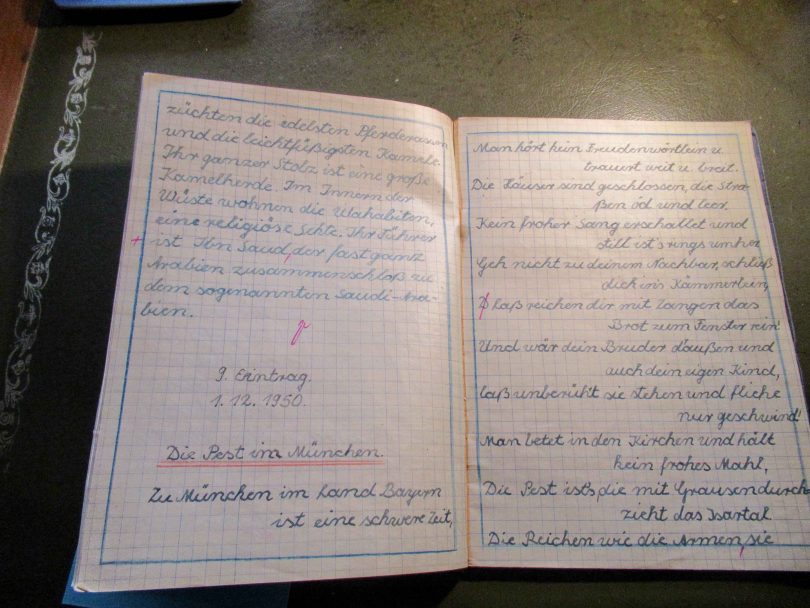 züchten die edelsten Pferderassen
und die leichtfüßigsten Kamele.
Ihr ganzer Stolz ist eine große
Kamelherde. Im Innern der
Wüste wohnen die Wahabiten,
eine religiöse Sekte. Ihr Führer
ist Ibn Saud, der fast ganz
Arabien zusammenschloß zu
dem sogenannten Saudi-Ara-
bien.
9. Eintrag.
1. 12. 1950.
Die Pest in München.
Zu München im Land Bayern
ist eine schwere Zeit,
Man hört kein Freudenwörtlein u.
trauert weit u. breit.
Die Häuser sind geschlossen, die Stra-
ßen öd und leer.
Kein froher Sang erschallet und
still ist's rings umher
Geh nicht zu deinem Nachbar, schließ
dich ins Kämmerlein,
Laß reichen dir mit Zangen das
Brot zum Fenster rein!
Und wär dein Bruder draußen und
auch dein eigen Kind,
laß unberührt sie stehen und fliehe
nur geschwind!
Man betet in den Kirchen und hält
kein frohes Mahl,
Die Pest ist's, die mit Grausen durch-
zieht das Isartal
Die Reichen wie die Armen, sie